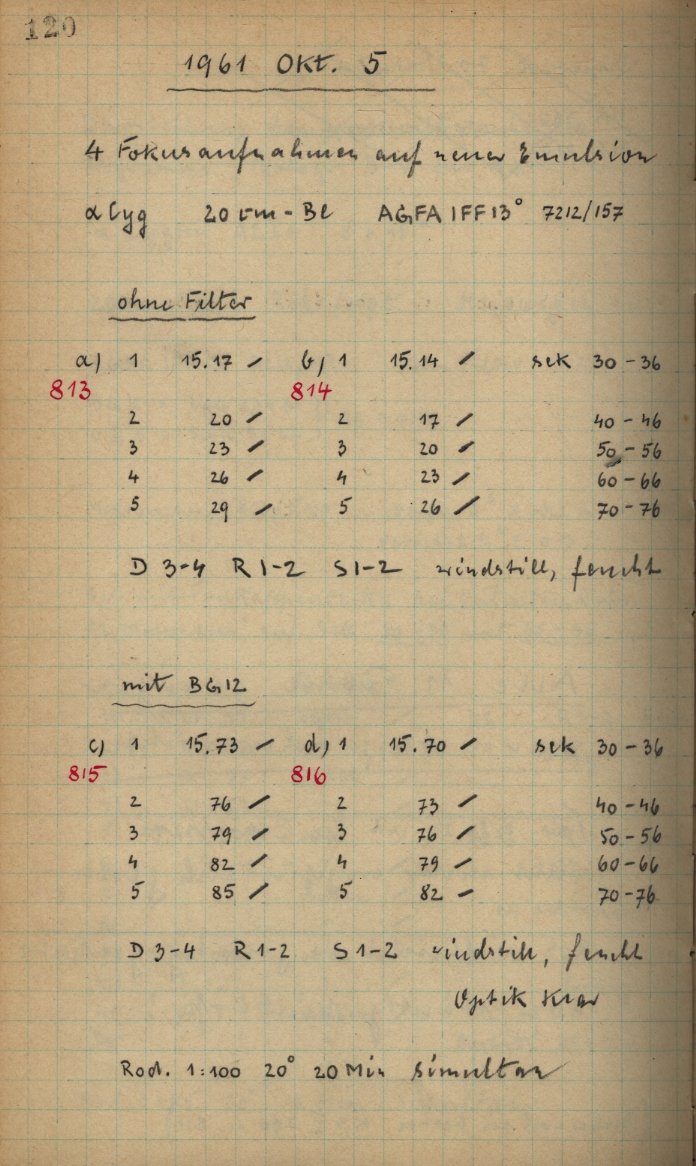 120
1961 Okt. 5
4 Fokusaufnahmen auf neuer Emulsion
α Cyg 20 cm-Bl AGFA IFF 13° 7212/157
ohne Filter
a) 1 15.17 / b) 1 15.14 / sek 30-36
813 814
2 20 / 2 17 / 40-46
3 23 / 3 20 / 50-56
4 26 / 4 23 / 60-66
5 29 / 5 26 / 70-76
D 3-4 R 1-2 S 1-2 windstill, feucht
mit BG12
c) 1 15.73 / d) 1 15.70 / sek 30-36
815 816
2 76 / 2 73 / 40-46
3 79 / 3 76 / 50-56
4 82 / 4 79 / 60-66
5 85 / 5 82 / 70-76
D 3-4 R 1-2 S 1-2 windstill, feucht
Optik klar
Rod. 1:100 20° 20 Min simultan